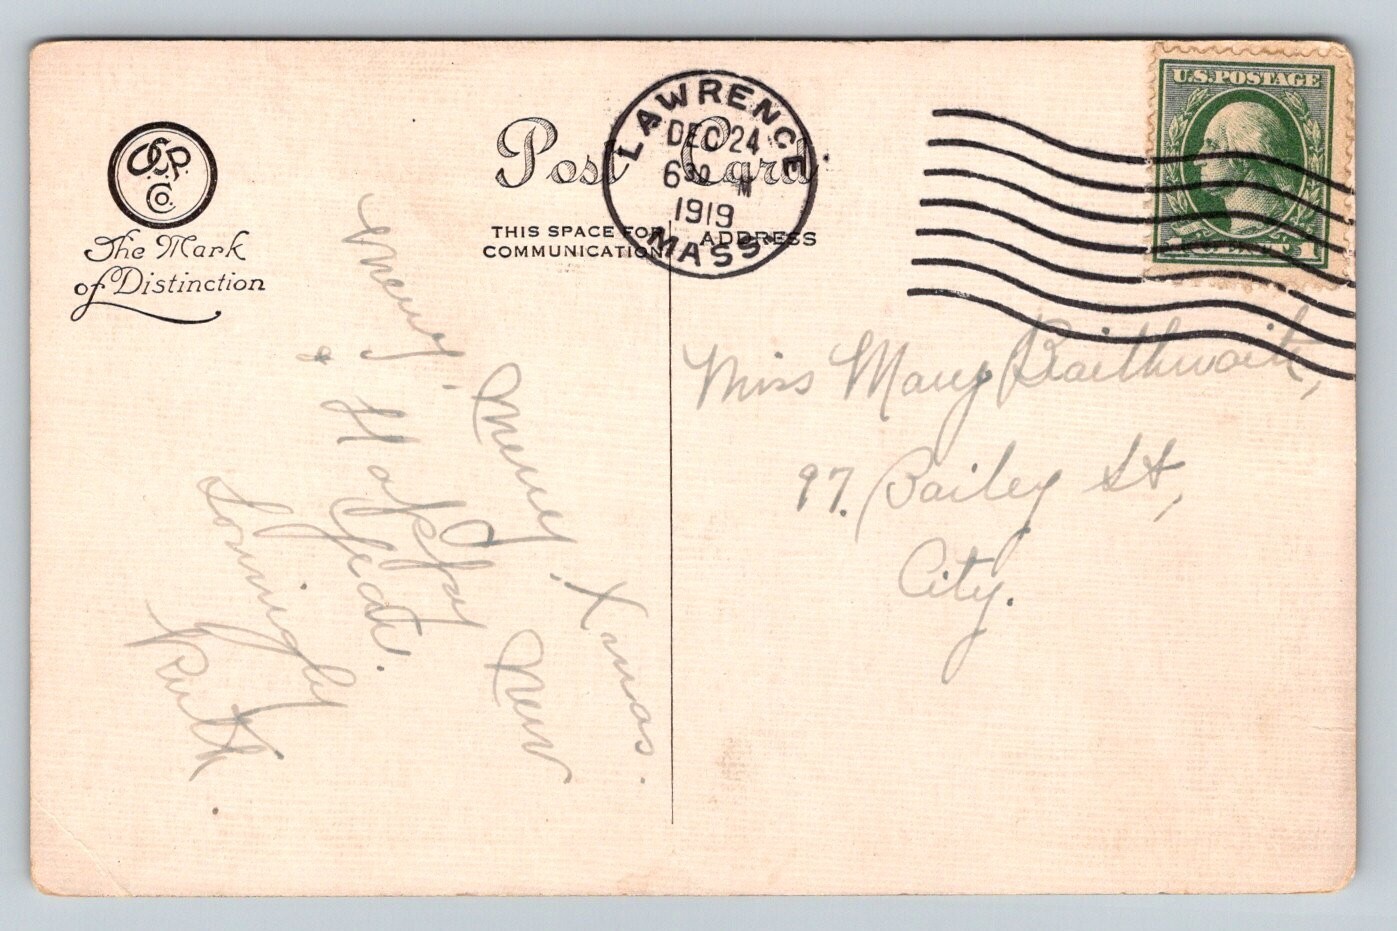 G.S.P.
Co.
The Mark
of Distinction
Post Card
THIS SPACE FOR
COMMUNICATION
ADDRESS
LAWRENCE
DEC 24
6 30 M
1919
MASS.
U.S. POSTAGE
1 CENT 1
Merry, Merry Xmas.
& Happy New
Year.
Lovingly
Ruth.
Miss Mary Braithwaite,
97. Bailey St,
City.